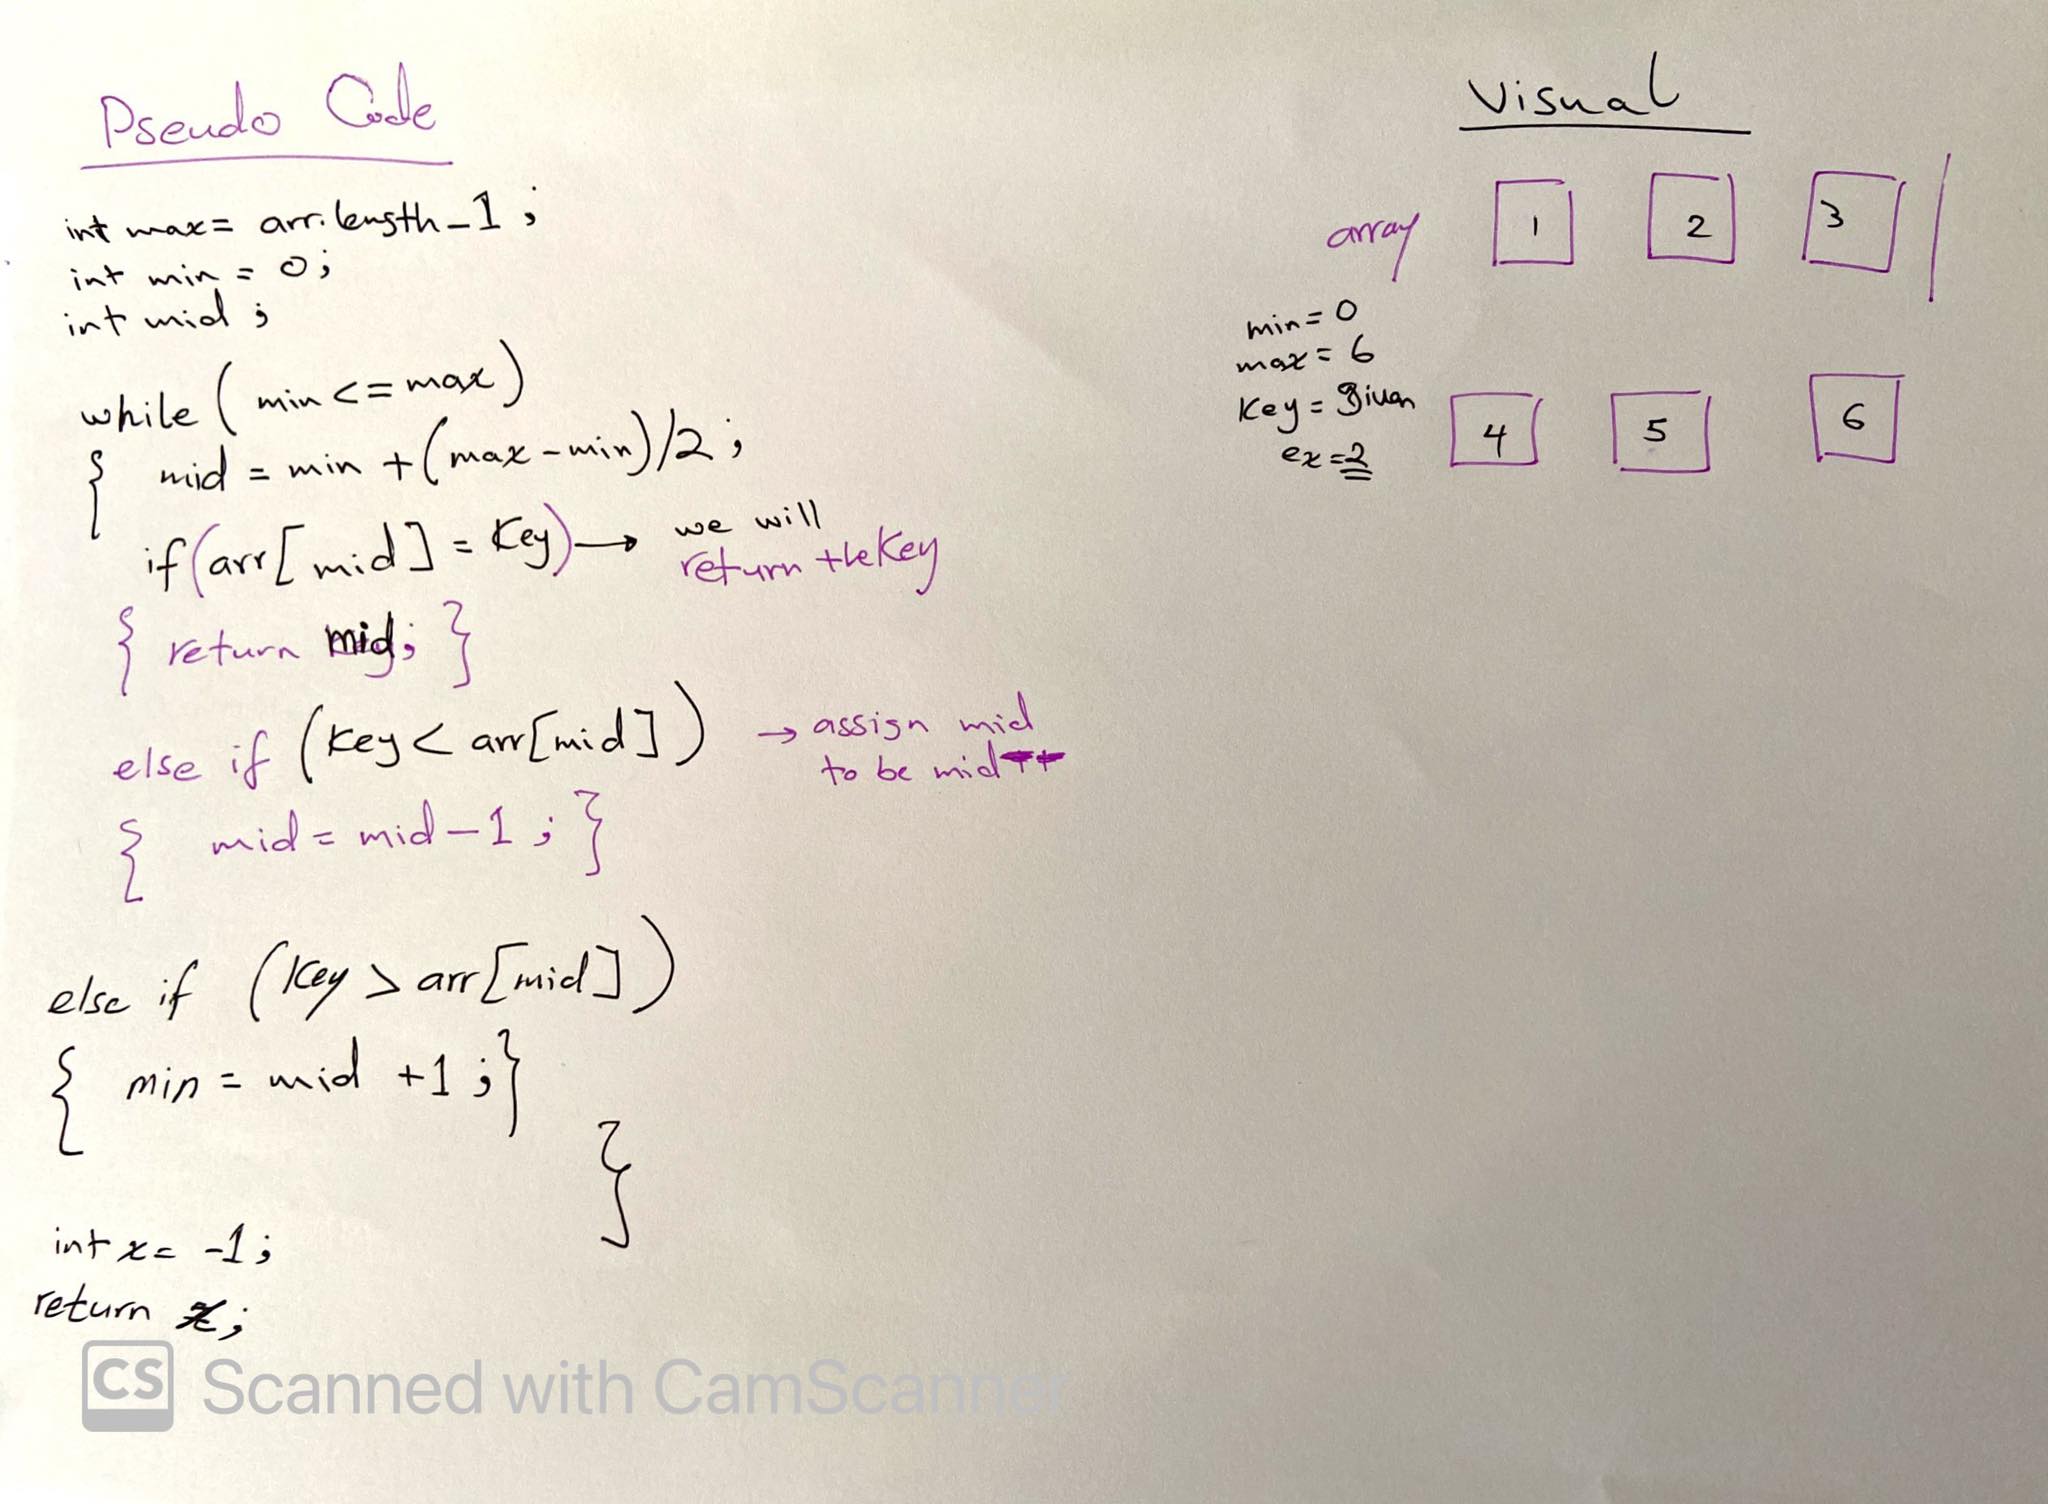 Pseudo Code
int max = arr.length-1;
int min = 0;
int mid;
while (min <= max)
{ mid = min + (max - min)/2;
if (arr[mid] = Key) → we will
return the Key
{ return mid; }
else if (Key < arr[mid]) → assign mid
to be mid
{ mid = mid - 1; }
else if (Key > arr[mid])
{ min = mid +1; }
}
int x = -1;
return x;
Visual
array 1 2 3
min = 0
max = 6
Key = given
ex = 2
4 5 6
CS Scanned with CamScanner